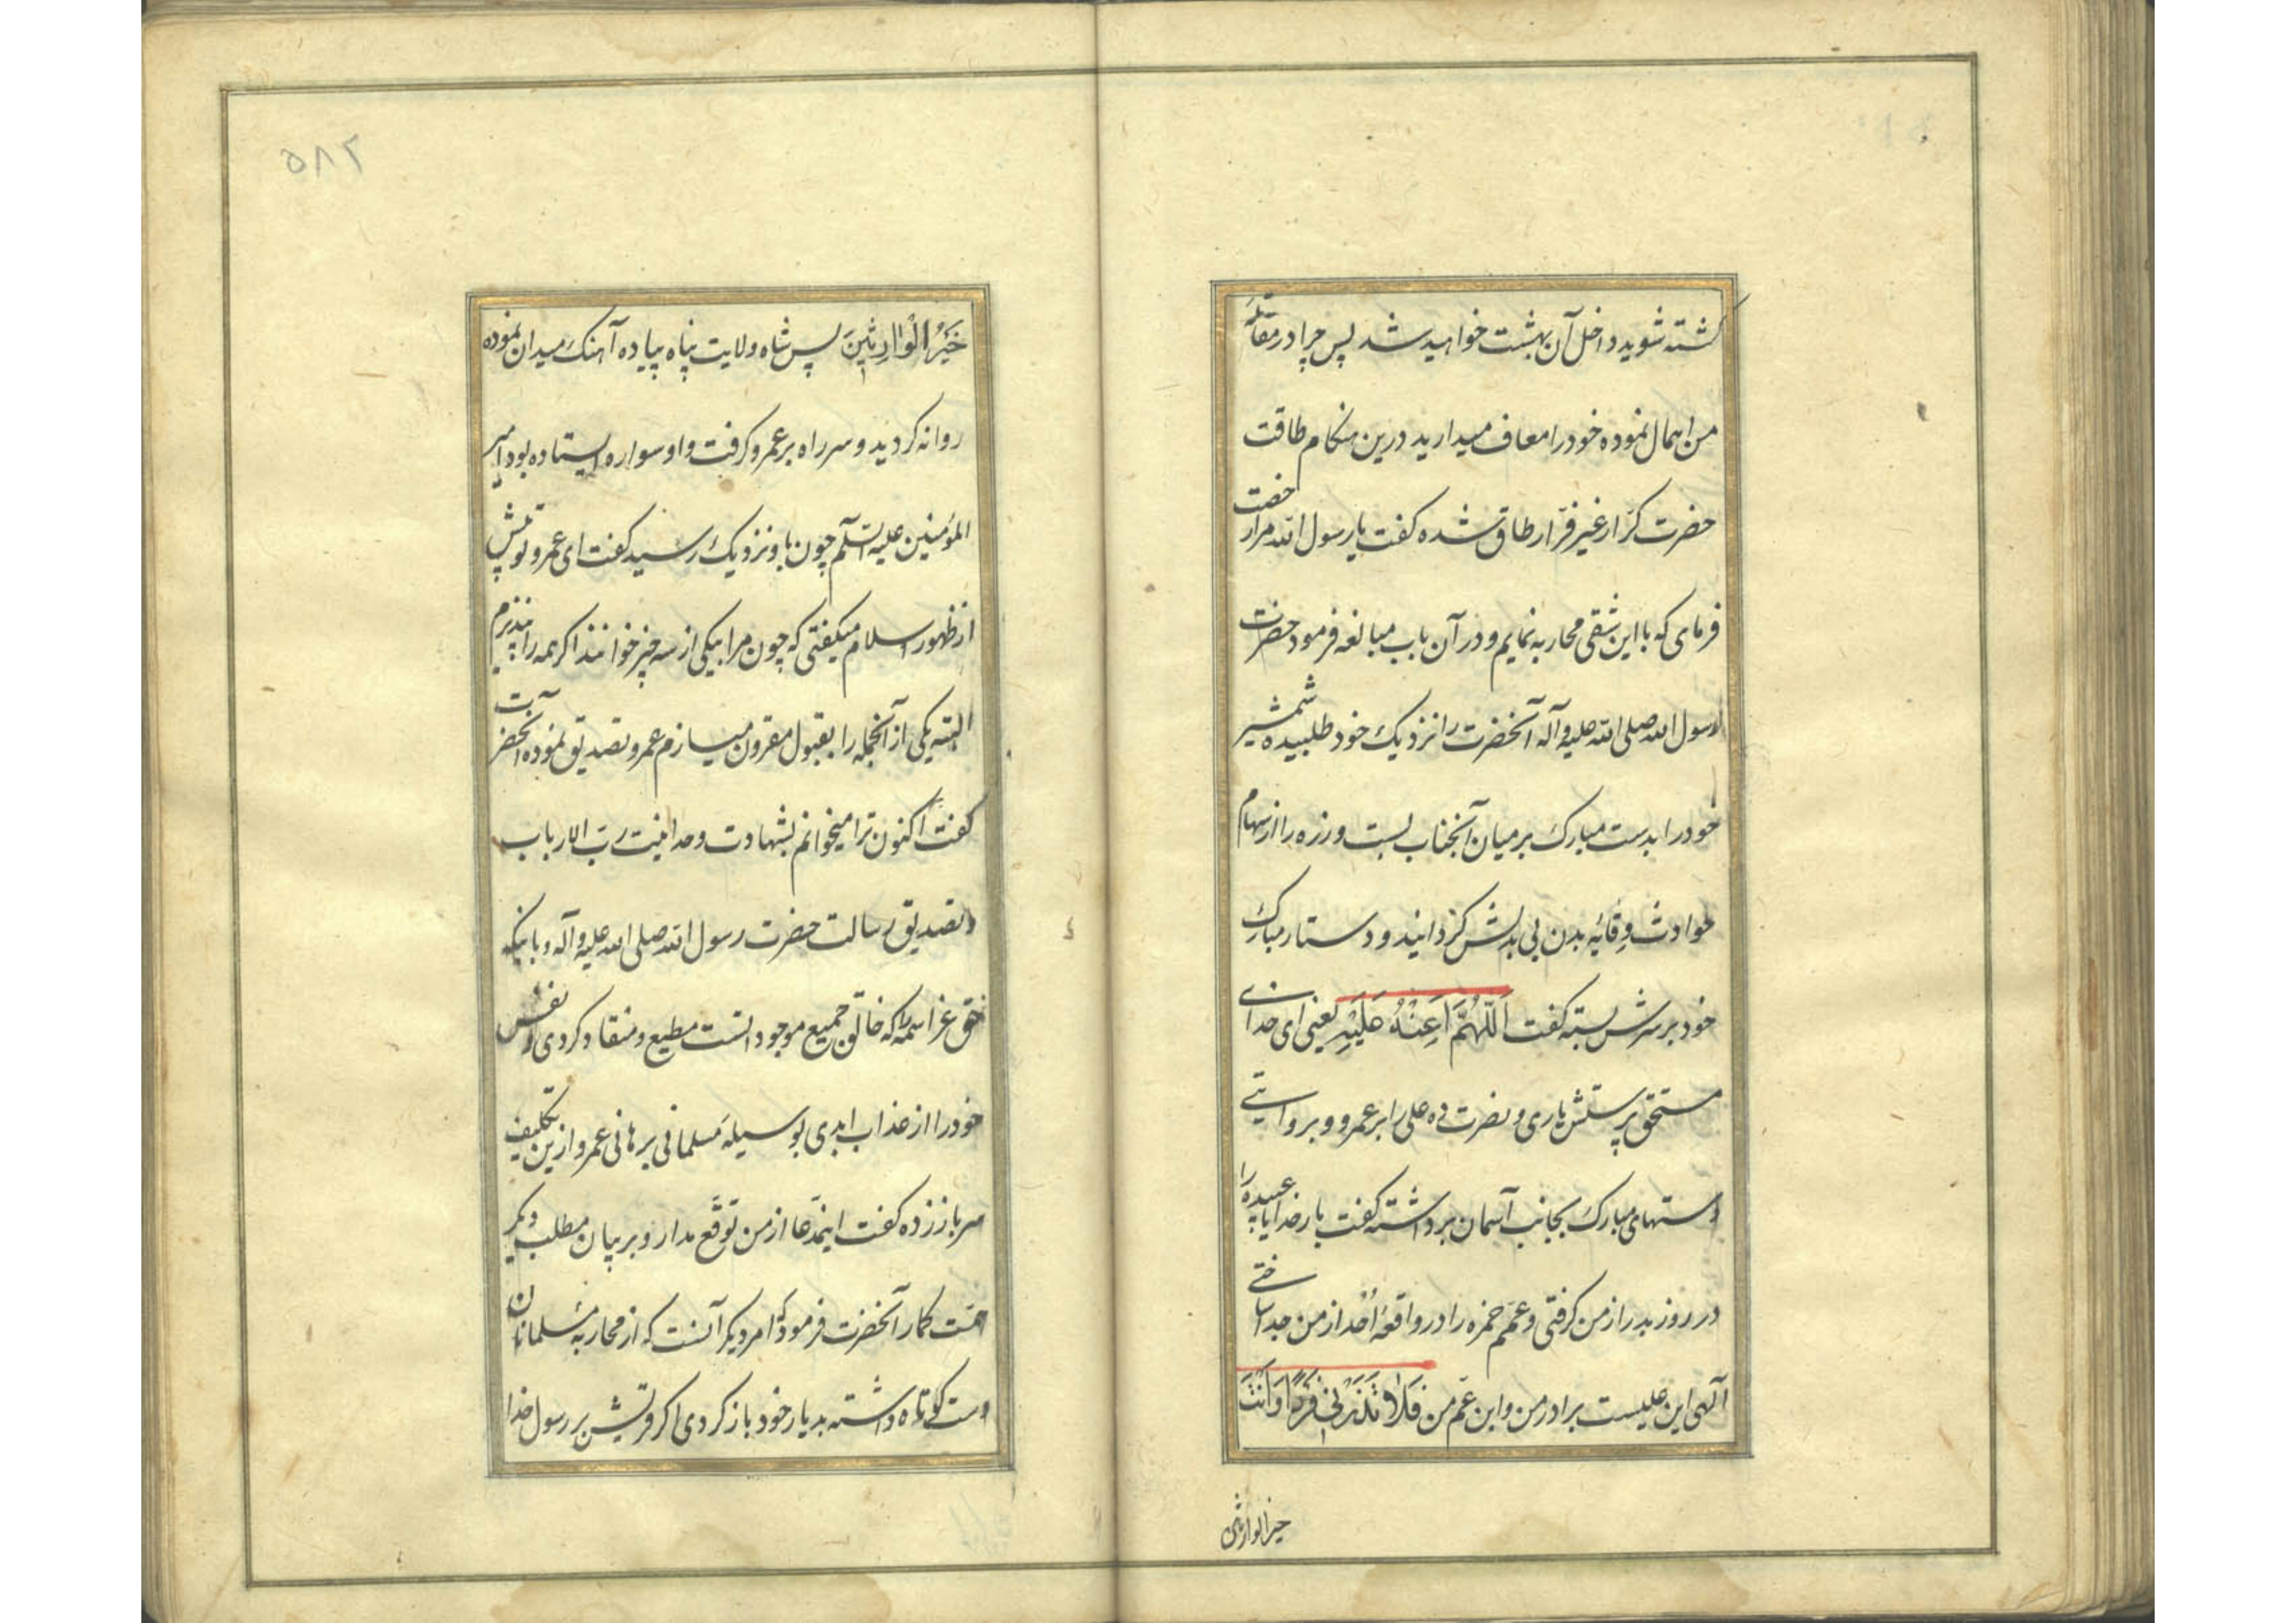 کشته شوید داخل آن بهشت خواهید شد پس چرا در مقاتلهٔ
من اهمال نموده خود را معاف میدارید درین هنکام طاقت
حضرت کرّار غیر فرّار طاق شده کفت یا رسول الله مرا رخصت
فرمای که با این شقی محاربه نمایم و در آن باب مبالغه فرمود حضرت
رسول الله صلی الله علیه و آله آنحضرت را نزدیک خود طلبیده شمشیر
خود را بدست مبارک بر میان آنجناب بست و زره را از سهام
حوادث وقایهٔ بدن بی بدلش کردانید و دستار مبارک
خود بر سرش بسته کفت اَللّٰهُمَّ اَعِنْهُ عَلَیْهِ یعنی ای خدای
مستحق پرستش یاری و نصرت ده علی را بر عمرو و بروایتی
دستهای مبارک بجانب آسمان برداشته کفت بار خدایا عبیده را
در روز بدر از من کرفتی و عمم حمزه را در واقعهٔ اُحُد از من جدا ساختی
آلهی این علیست برادر من و ابن عم من فَلَا تَذَرْنِی فَرْدًا وَ اَنْتَ
خیر الوارثین
۵۸۲
خَیْرُ الْوٰارِثِینَ پس شاه ولایت پناه پیاده آهنک میدان نموده
روانه کردید و سر راه بر عمرو کرفت و او سواره ایستاده بود امیر
المؤمنین علیه السلم چون باو نزدیک رسید کفت ای عمرو تو پیش
از ظهور اسلام میکفتی که چون مرا بیکی از سه چیز خوانند اکر همه را نپذیرم
البته یکی از آنجمله را بقبول مقرون میسازم عمرو تصدیق نموده آنحضرت
کفت اکنون ترا میخوانم بشهادت وحدانیت رب الارباب
و تصدیق رسالت حضرت رسول الله صلی الله علیه و آله و باینکه
حق عز اسمه را که خالق جمیع موجود اتست مطیع و منقاد کردی و نفس
خود را از عذاب ابدی بوسیلهٔ مسلمانی برهانی عمرو ازین تکلیف
سر باز زده کفت اینمدّعا از من توقّع مدار و بر بیان مطلب دیکر
همّت کمار آنحضرت فرمود که امر دیکر آنست که از محاربهٔ مسلمانان
دست کوتاه داشته بدیار خود باز کردی اکر قریش بر رسول خدا